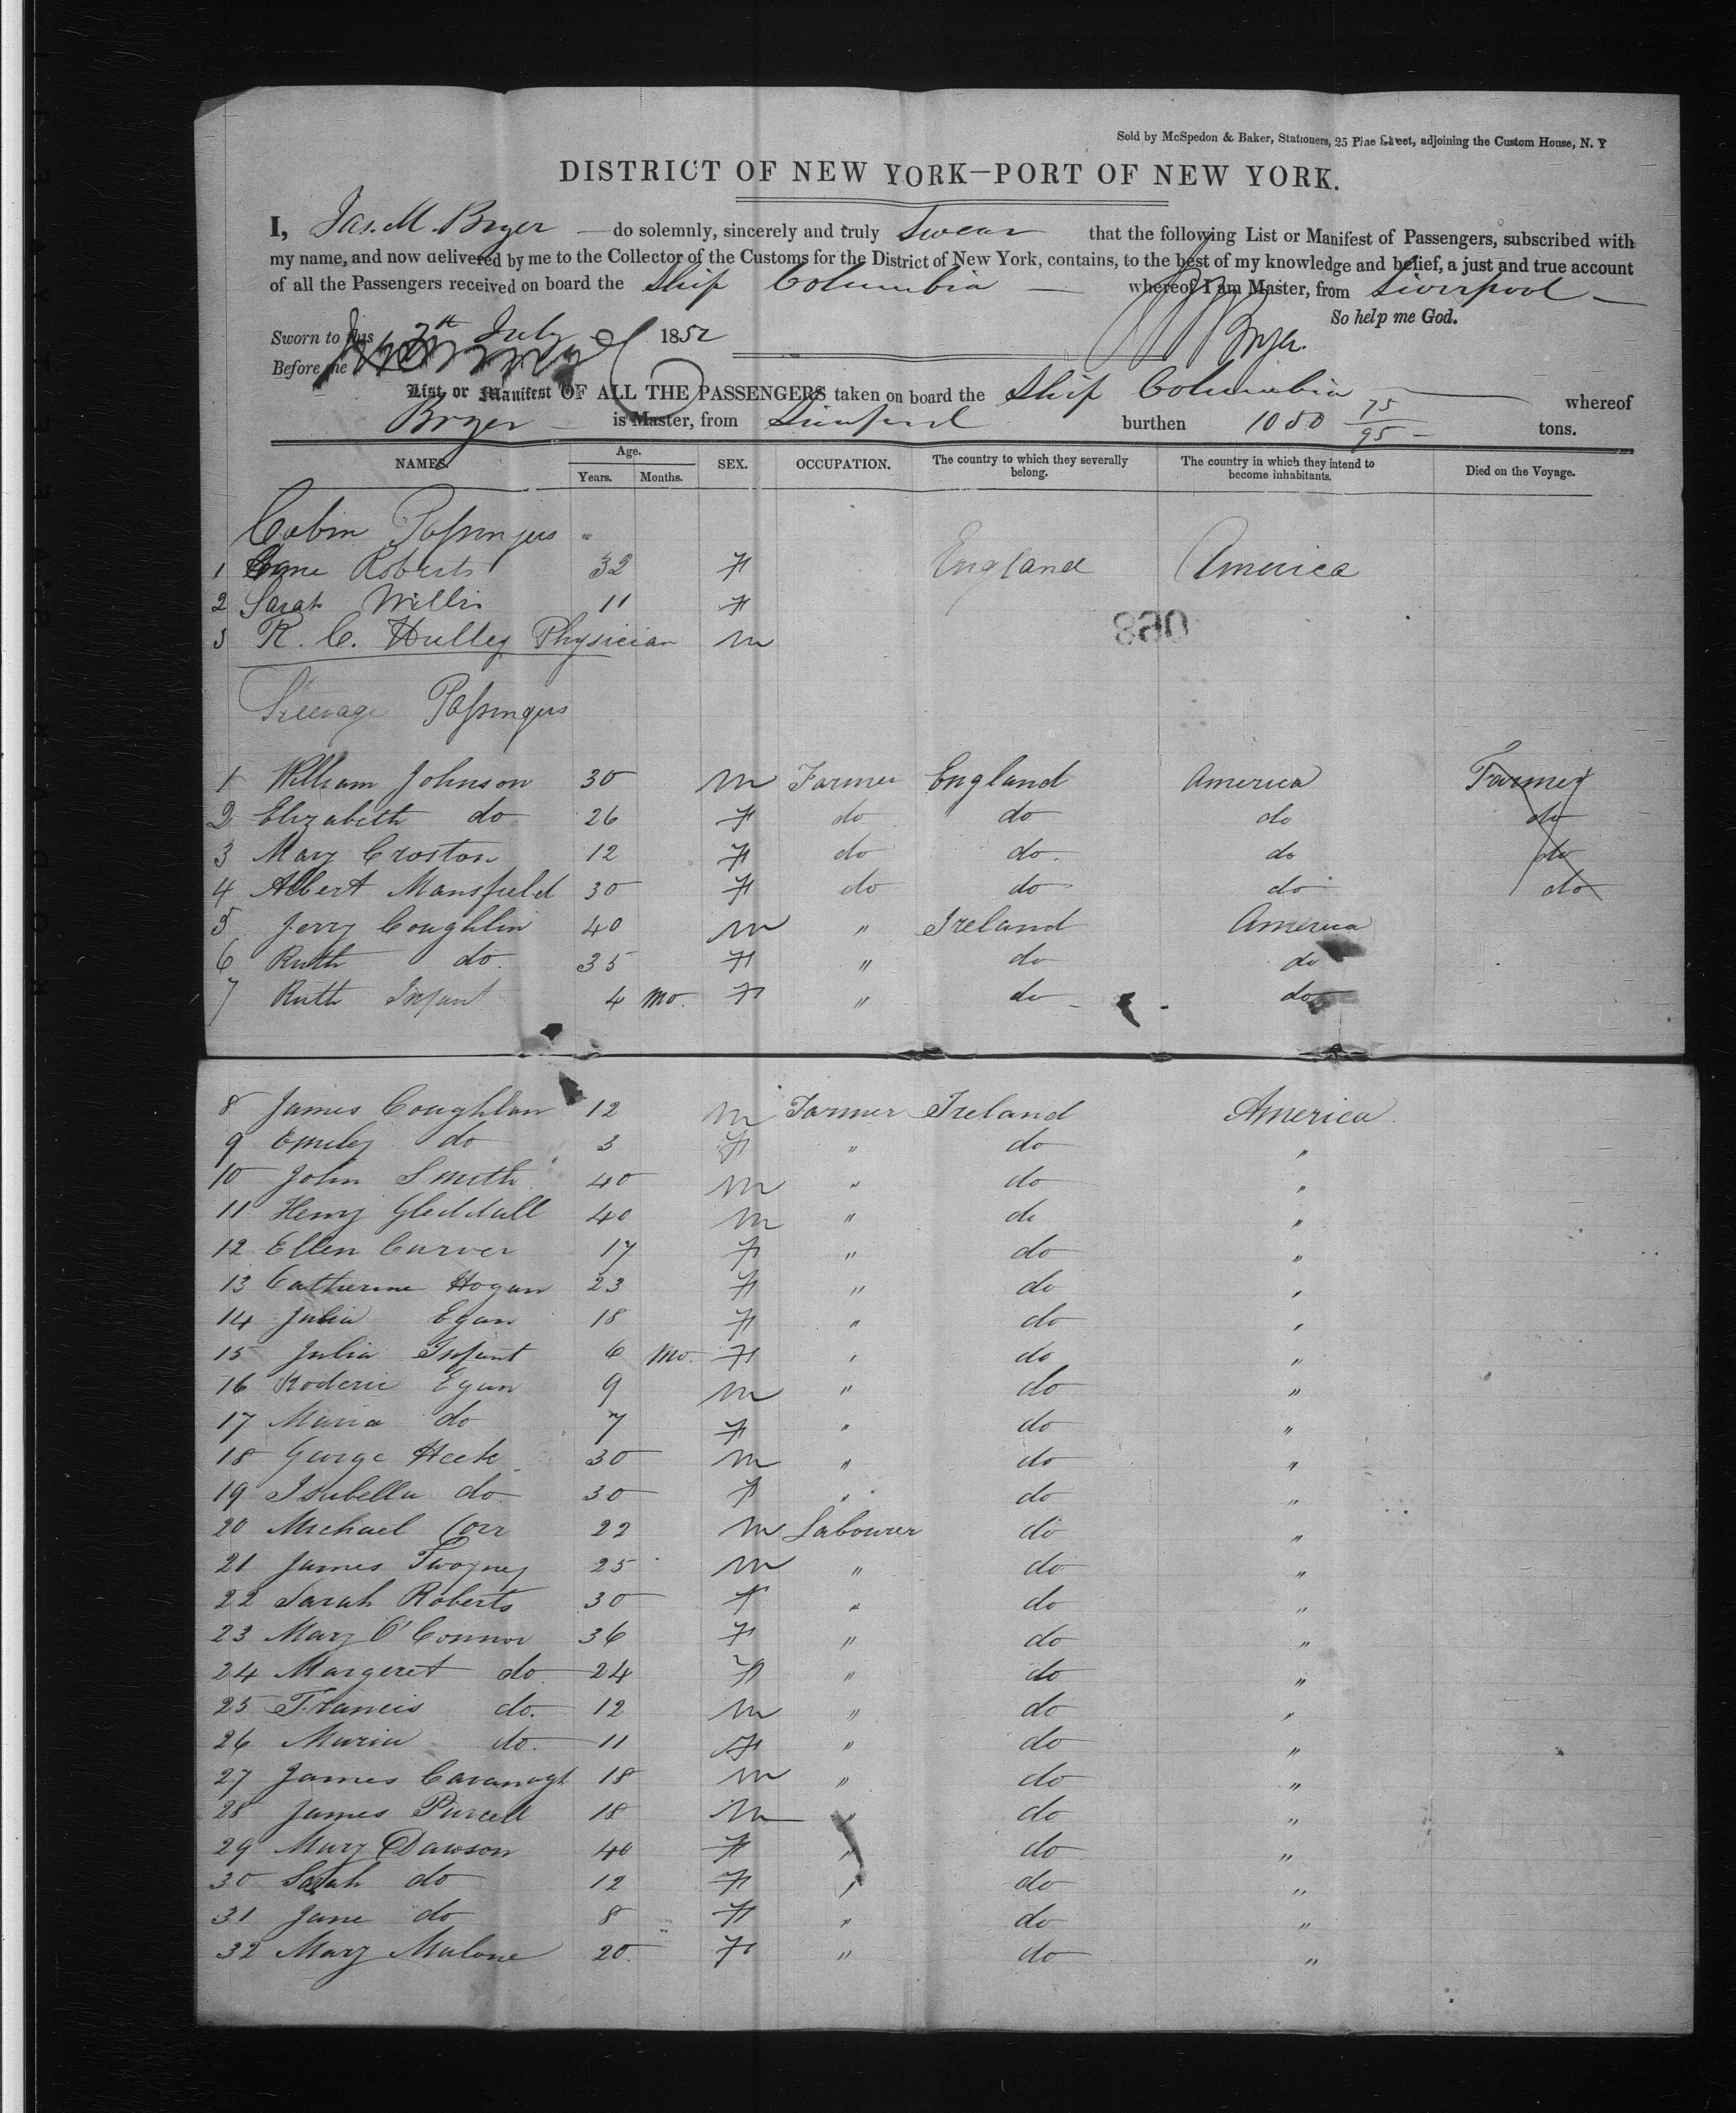 Sold by McSpedon & Baker, Stationers, 25 Pine Street, adjoining the Custom House, N. Y
DISTRICT OF NEW YORK—PORT OF NEW YORK.
I, Jas. M. Bryer — do solemnly, sincerely and truly Swear that the following List or Manifest of Passengers, subscribed with
my name, and now delivered by me to the Collector of the Customs for the District of New York, contains, to the best of my knowledge and belief, a just and true account
of all the Passengers received on board the Ship Columbia — whereof I am Master, from Liverpool —
So help me God.
Sworn to this 2th July 1852 Bryer.
Before me
List or Manifest OF ALL THE PASSENGERS taken on board the Ship Columbia — whereof
Bryer — is Master, from Liverpool burthen 1050 75/95 — tons.
NAMES. Age. Years. Months. SEX. OCCUPATION. The country to which they severally belong. The country in which they intend to become inhabitants. Died on the Voyage.
Cabin Passengers
1 Jane Roberts 32 F England America
2 Sarah Willis 11 F
3 R. C. Hulley Physician M
890
Steerage Passengers
1 William Johnson 30 M Farmer England America Farmer
2 Elizabeth do 26 F do do do do
3 Mary Croston 12 F do do. do do
4 Albert Mansfield 30 F do do do do
5 Jerry Coughlin 40 M " Ireland America
6 Ruth do. 35 F " do do
7 Ruth Infant 4 mo. F " do do
8 James Coughlan 12 M Farmer Ireland America
9 Emily do 3 F " do "
10 John Smith 40 M " do "
11 Henry Gleddall 40 M " do "
12 Ellen Curver 17 F " do "
13 Catherine Hogan 23 F " do "
14 Julia Egan 18 F " do "
15 Julia Infant 6 Mo. F " do "
16 Roderic Egan 9 M " do "
17 Maria do 7 F " do "
18 George Heek 30 M " do "
19 Isabella do. 30 F " do "
20 Michael Corr 22 M Labourer do "
21 James Twogney 25 M " do "
22 Sarah Roberts 30 F " do "
23 Mary O'Connor 36 F " do "
24 Margeret do 24 F " do "
25 Francis do. 12 M " do "
26 Maria do. 11 F " do "
27 James Cavanagh 18 M " do "
28 James Purcell 18 M " do "
29 Mary Dawson 40 F " do "
30 Sarah do 12 F " do "
31 Jane do 8 F " do "
32 Mary Malone 20 F " do "